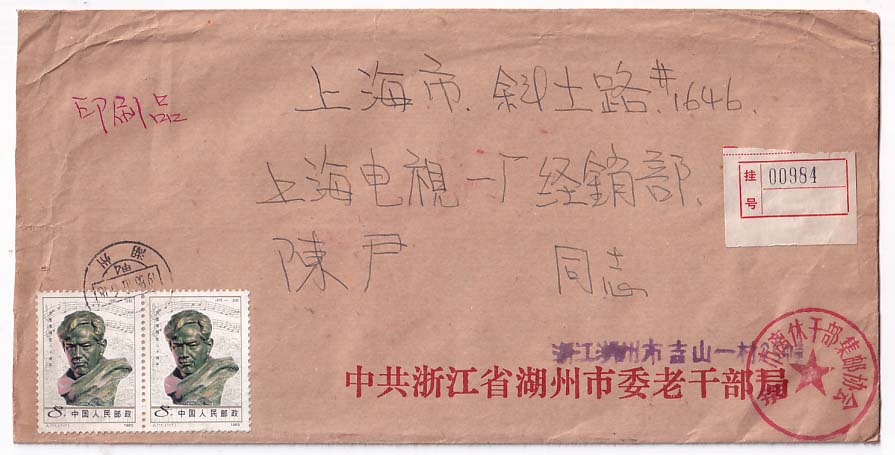 印刷品
上海市.斜土路.#1646.
上海电視一厂经銷部.
陳尹 同志
挂号 00984
湖州
8 中国人民邮政 1985
8 中国人民邮政 1985
浙江湖州市吉山一村
中共浙江省湖州市委老干部局
市离休干部集邮协会